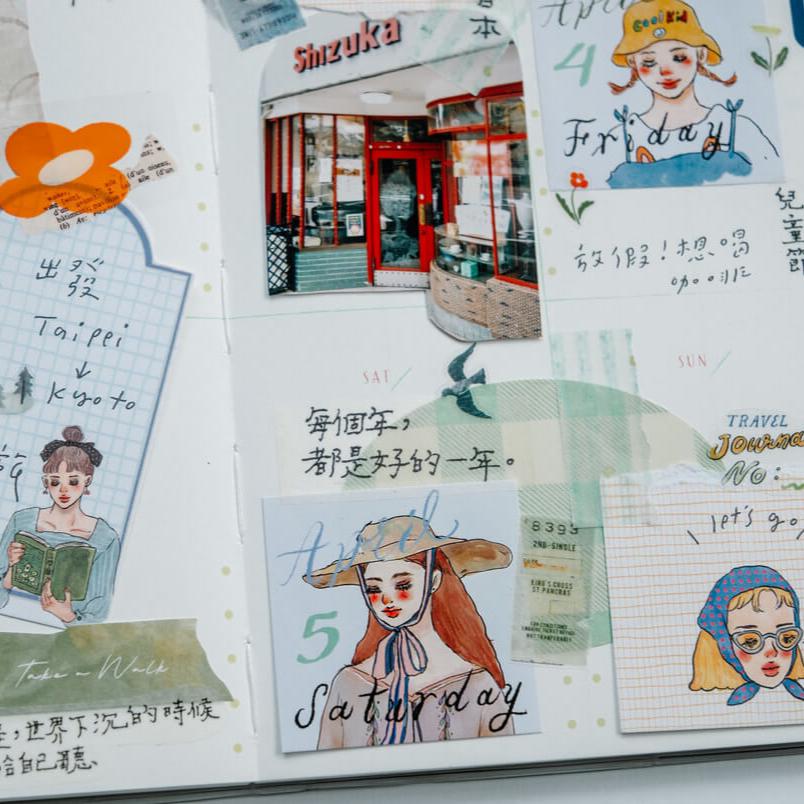 出發
Taipei
↓
Kyoto
Take a Walk
世界下沉的時候
給自己聽。
Shizuka
本
April
4
CooL Kid
Friday
兒
童
節
放假！想喝
咖啡
SAT
SUN
每個年，
都是好的一年。
April
5
Saturday
8393
2ND-SINGLE
KING'S CROSS
ST PANCRAS
TRAVEL
Journa
No:
let's go